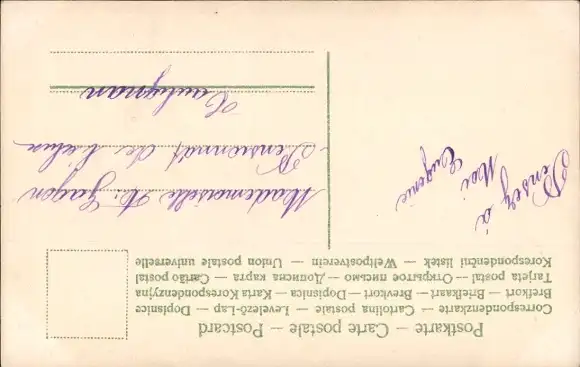 Postkarte — Carte postale — Postcard
Correspondenzkarte — Cartolina postale — Levelező-Lap — Dopisnice
Brefkort — Briefkaart — Brevkort — Dopisnica — Karta Korespondenzyjna
Tarjeta postal — Открытое письмо — Дописна карта — Cartão postal
Korespondenční listek — Weltpostverein — Union postale universelle
Mademoiselle A. Gagon
Pensionnat de
Pensez à
Moi
Eugenie